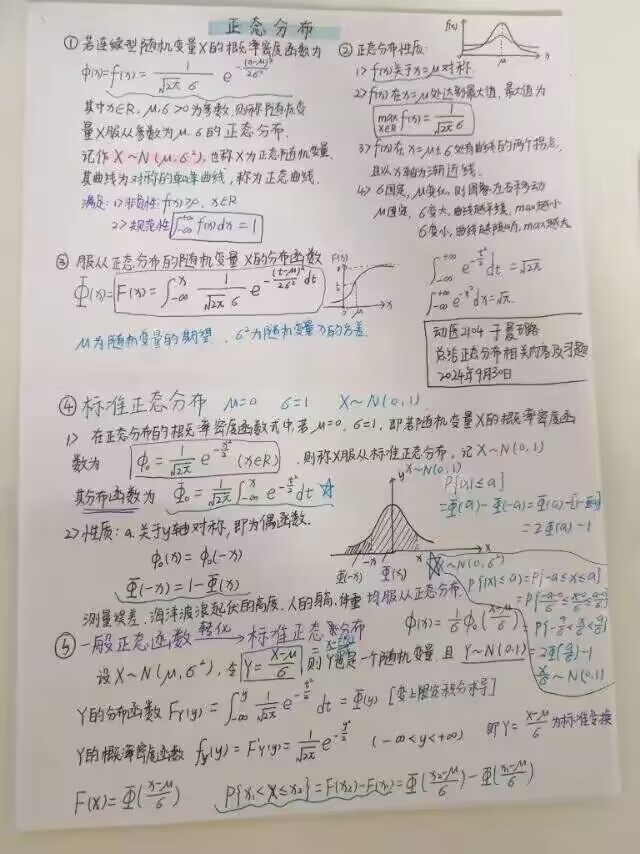 正态分布
① 若连续型随机变量X的概率密度函数为
φ(x)=f(x)= 1/(√2π σ) e^(-(x-μ)²/2σ²)
其中x∈R, μ,σ>0为参数,则称随机变
量X服从参数为μ,σ的正态分布.
记作 X~N(μ,σ²),也称X为正态随机变量.
其曲线为对称的钟峰曲线,称为正态曲线.
满足: 1>非负性: f(x)≥0, x∈R
2>规范性 ∫_{-∞}^{+∞} f(x)dx = 1
② 正态分布性质:
f(x)
μ
x
1> f(x)关于x=μ对称.
2> f(x)在x=μ处达到最大值,最大值为
max_{x∈R} f(x) = 1/(√2π σ)
3> f(x)在x=μ±σ处有曲线的两个拐点,
且以x轴为渐近线.
4> σ固定, μ变化,则图像左右移动
μ固定, σ变大,曲线越平缓, max越小
σ变小,曲线越陡峭, max越大
③ 服从正态分布的随机变量X的分布函数
Φ(x)= F(x) = ∫_{-∞}^{x} 1/(√2π σ) e^(-(t-μ)²/2σ²) dt
F(x)
μ
x
μ为随机变量的期望, σ²为随机变量X的方差.
∫_{-∞}^{+∞} e^(-t²/2) dt = √2π
∫_{-∞}^{+∞} e^(-x²) dx = √π.
动医2104 于晨璐
总结正态分布相关内容及习题
2024年9月30日
④ 标准正态分布 μ=0 σ=1 X~N(0,1)
1> 在正态分布的概率密度函数式中,若μ=0, σ=1,即若随机变量X的概率密度函
数为 φ₀ = 1/√2π e^(-x²/2) (x∈R) ,则称X服从标准正态分布,记X~N(0,1)
其分布函数为 Φ₀ = 1/√2π ∫_{-∞}^{x} e^(-t²/2) dt ☆
2>性质: a.关于y轴对称,即为偶函数.
φ₀(x) = φ₀(-x)
Φ(-x) = 1-Φ(x)
y X~N(0,1)
-x x x
Φ(-x) Φ(x)
P{|X|≤a}
=Φ(a)-Φ(-a)=Φ(a)-[1-Φ(a)]
=2Φ(a)-1
☆ X~N(0,σ²)
P{|X|≤a}=P{-a≤x≤a}
=P{(-a-0)/σ≤(x-0)/σ≤(a-0)/σ}
=P{-a/σ≤x/σ≤a/σ}
=2Φ(a/σ)-1
x/σ~N(0,1)
测量误差,海洋波浪起伏的高度,人的身高,体重 均服从正态分布
φ(x) = 1/σ φ₀((x-μ)/σ)
⑤ 一般正态函数 转化→ 标准正态分布
设X~N(μ,σ²),令 Y=(X-μ)/σ 则Y也是一个随机变量,且 Y~N(0,1)
Y的分布函数 F_Y(y) = ∫_{-∞}^{y} 1/√2π e^(-t²/2) dt = Φ(y) [变上限定积分求导]
Y的概率密度函数 f_Y(y) = F'_Y(y) = 1/√2π e^(-y²/2) (-∞<y<+∞) 即Y=(X-μ)/σ为标准变换
F(x) = Φ((x-μ)/σ) P{x₁<X≤x₂} = F(x₂)-F(x₁) = Φ((x₂-μ)/σ) - Φ((x₁-μ)/σ)